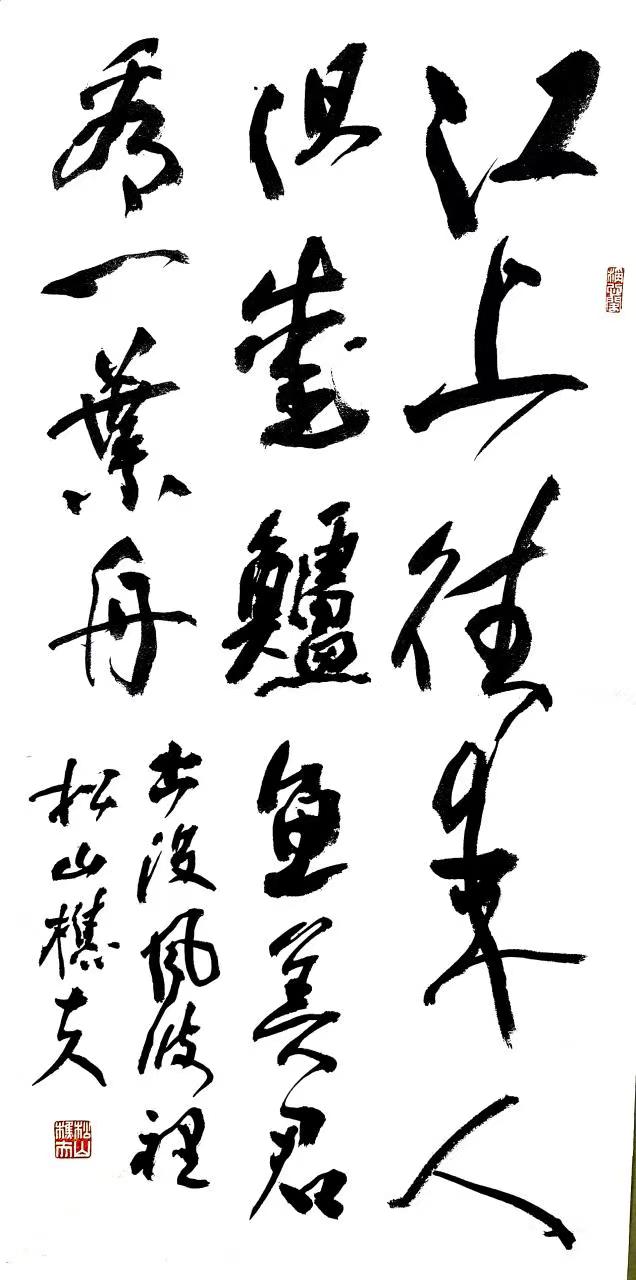 江上往來人
但愛鱸魚美君
看一葉舟
出没風波裡
松山樵夫
松山樵夫